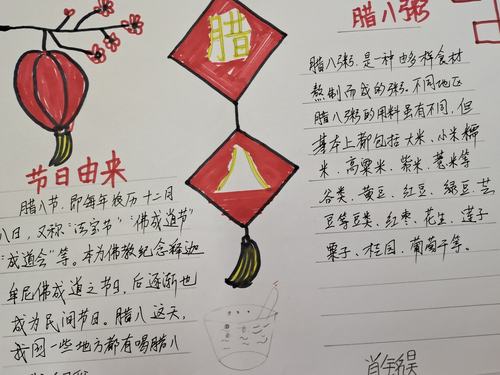 节日由来
腊八节,即每年农历十二月
八日,又称"法宝节""佛成道节"
"成道会"等。本为佛教纪念释迦
牟尼佛成道之节日,后逐渐也
成为民间节日。腊八这天,
我国一些地方都有喝腊八
腊
八
腊八粥
腊八粥,是一种由多样食材
熬制而成的粥。不同地区
腊八粥的用料虽有不同,但
基本上都包括大米、小米、糯
米、高粱米、紫米、薏米等
谷类,黄豆、红豆、绿豆、芸
豆等豆类,红枣、花生、莲子
栗子、桂圆、葡萄干等。